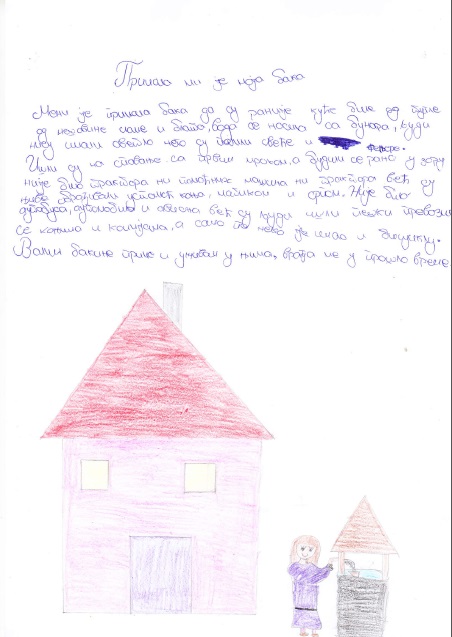 Причала ми је моја бака
Мени је причала бака да су раније куће биле од
од мешавине сламе и блата, вода се носила са бунара, људи
нису имали светло него су палили свеће и фењере.
Ишли су на спавање са првим мраком, а будили се рано у зору
није било трактора ни помоћних машина ни трактора већ су
њиве обрађивали уз помоћ коња, мотиком и српом. Није било
аутобуса, аутомобила и авиона већ су људи ишли пешке превозили
се коњима и кочијама, а само по неко је имао и бициклу.
Волим бакине приче и уживам у њима, враћа ме у прошло време